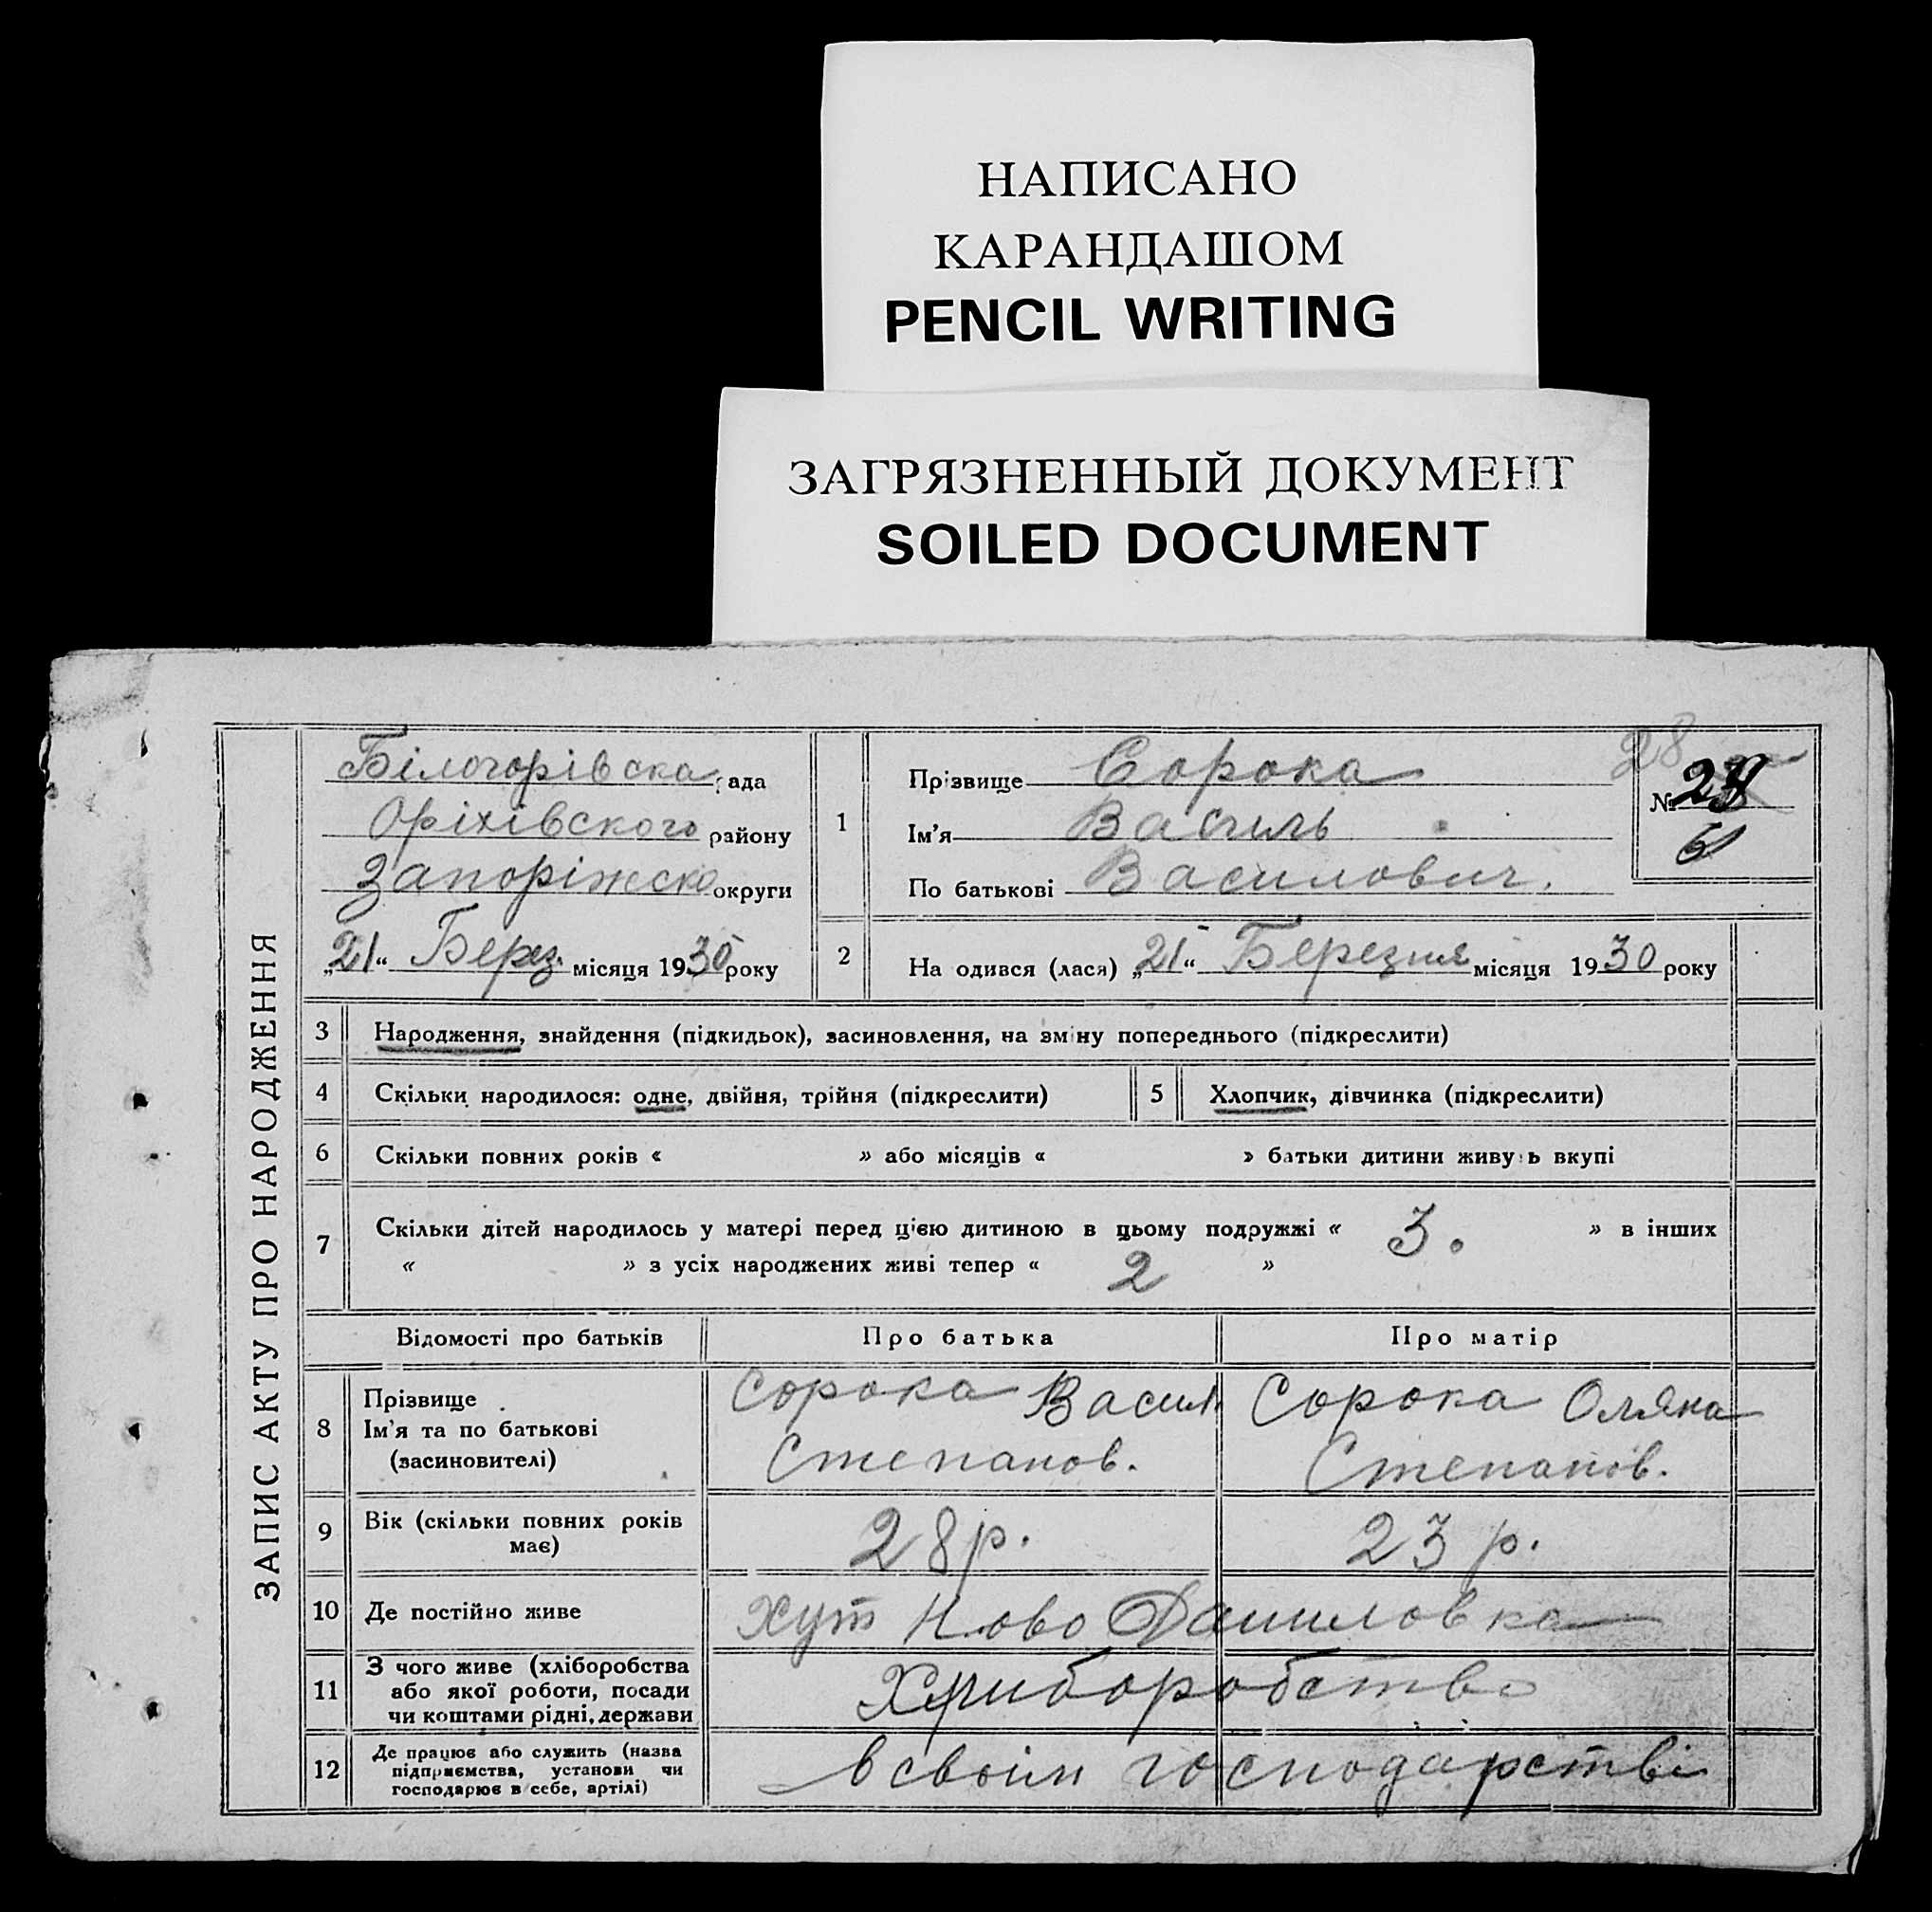 НАПИСАНО
КАРАНДАШОМ
PENCIL WRITING
ЗАГРЯЗНЕННЫЙ ДОКУМЕНТ
SOILED DOCUMENT
ЗАПИС АКТУ ПРО НАРОДЖЕННЯ
Білогорівська рада
Оріхівского району
Запоріжско округи
„21“ Берез. місяця 1930 року
1
Прізвище Сорока
Ім'я Василь
По батькові Василович.
28
№
2
На одився (лася) „21“ Березня місяця 1930 року
3 Народження, знайдення (підкидьок), засиновлення, на зміну попереднього (підкреслити)
4 Скільки народилося: одне, двійня, трійня (підкреслити)
5 Хлопчик, дівчинка (підкреслити)
6 Скільки повних років « » або місяців « » батьки дитини живуть вкупі
7 Скільки дітей народилось у матері перед цією дитиною в цьому подружжі « 3. » в інших
« » з усіх народжених живі тепер « 2 »
Відомості про батьків Про батька Про матір
8 Прізвище
Ім'я та по батькові
(засиновителі)
Сорока Васил.
Степанов.
Сорока Оляна
Степанів.
9 Вік (скільки повних років
має)
28 р. 23 р.
10 Де постійно живе Хут Ново Даниловка
11 З чого живе (хліборобства
або якої роботи, посади
чи коштами рідні, держави
Хлиборобство
12 Де працює або служить (назва
підприємства, установи чи
господарює в себе, артілі)
в своїм господарстві